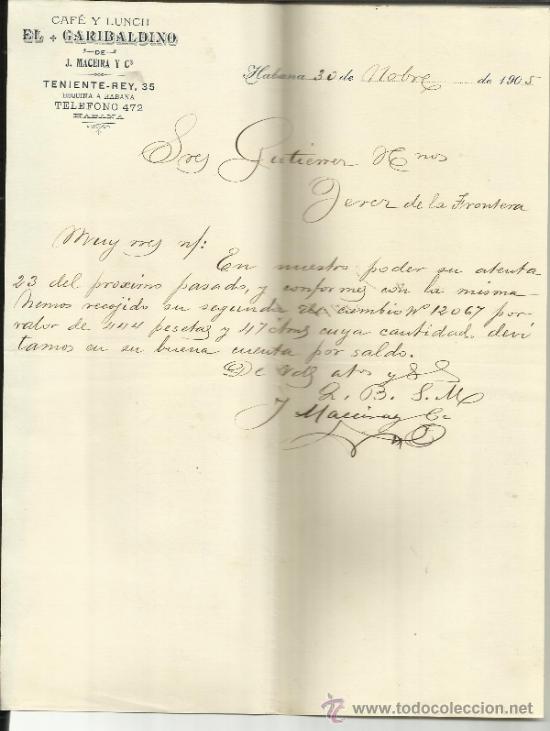 CAFÉ Y LUNCH
EL GARIBALDINO
DE
J. MACEIRA Y Cª
TENIENTE-REY, 35
ESQUINA A HABANA
TELEFONO 472
HABANA
Habana 30 de Nobre de 1905
Sres Gutierrez Hnos
Jerez de la Frontera
Muy sres n/:
En nuestro poder su atenta
23 del proximo pasado, y conformes con la misma
hemos recojido su segunda de cambio Nº 12067 por
valor de 444 pesetas y 47 ctms cuya cantidad devi
tamos en su buena cuenta por saldo.
De Vds atos y SS
Q. B. S. M
J Maceira y Cª
www.todocoleccion.net